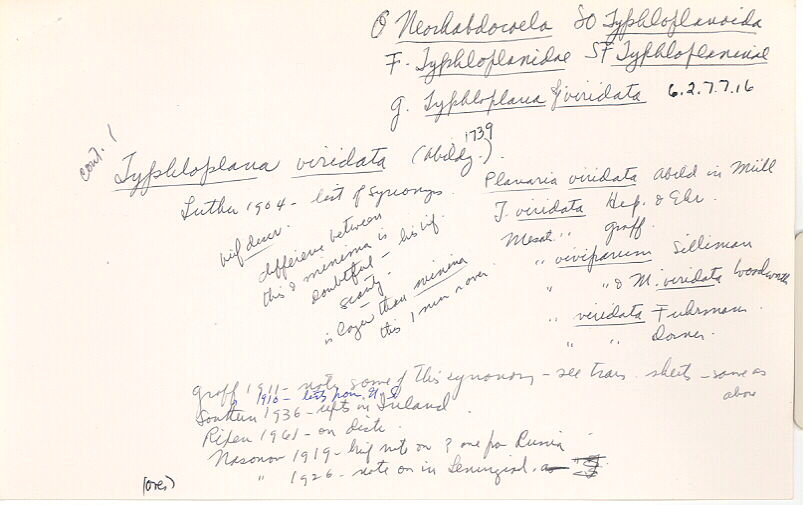 O Neorhabdocoela SO Typhloplanoida
F. Typhloplanidae SF Typhloplaninae
g. Typhloplana viridata 6.2.7.7.16
cont. 1
Typhloplana viridata (Abildg.) 1739
Luther 1904 - list of synonyms.
brief descr.
difference between
this & minima is
doubtful - his inf.
scanty.
is larger than minima
this 1 mm & over
Planaria viridata Abild in Müll
T. viridata Hep. & Ehr.
Mesost. " Graff.
" viviparum Silliman
" " & M. viridata Woodworth
" viridata Fuhrmann.
" " Dorner.
Graff 1911 - notes some of this synonomy - see trans. sheets - same as
above
" 1910 -
Southern 1936 - repts in Ireland.
Rixen 1961 - on distr.
Nasonov 1919 - brief note on & one for Russia
" 1926 - note on in Leningrad.
(over)